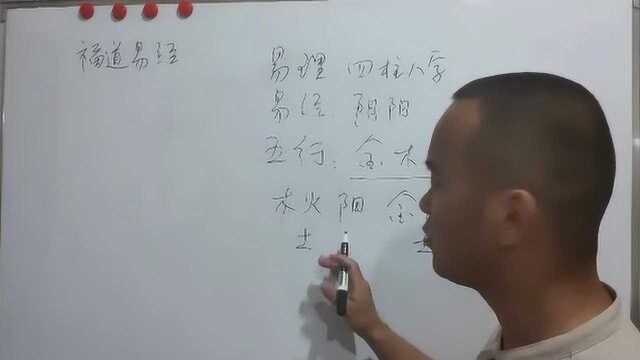 福道易经
易理 四柱八字
易经 阴阳
五行：金木
木火 阳 金
土 土